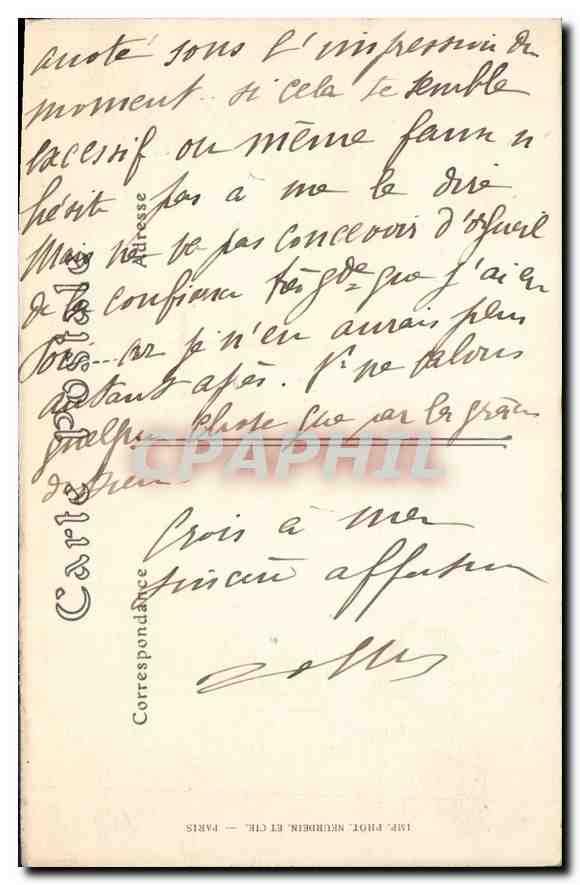 anoté sous l'impression du
moment.. si cela te semble
excessif ou même faux n'
hésite pas à me le dire
Mais ne va pas concevoir d'orgueil
de la confiance très gde que j'ai en
Toi.... car je n'en aurais plus
autant après. Ns ne valons
quelque chose que par la grâce
de Dieu
Crois à mon
sincère affection
Carte Postale
Adresse
Correspondance
CPAPHIL
IMP. PHOT. NEURDEIN, ET CIE. — PARIS